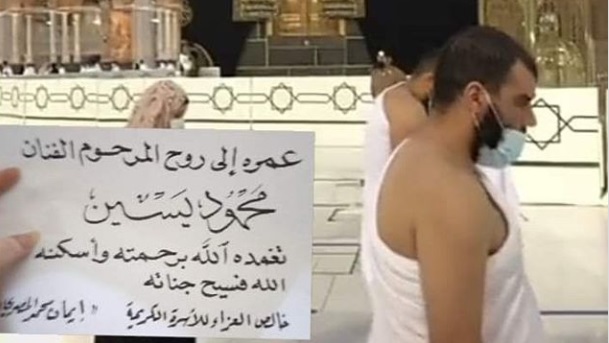 عمره إلى روح المرحوم الفنان
محمود يسين
تغمده الله برحمته وأسكنه
الله فسيح جناته
خالص العزاء للأسرة الكريمة " إيمان محمد المصري